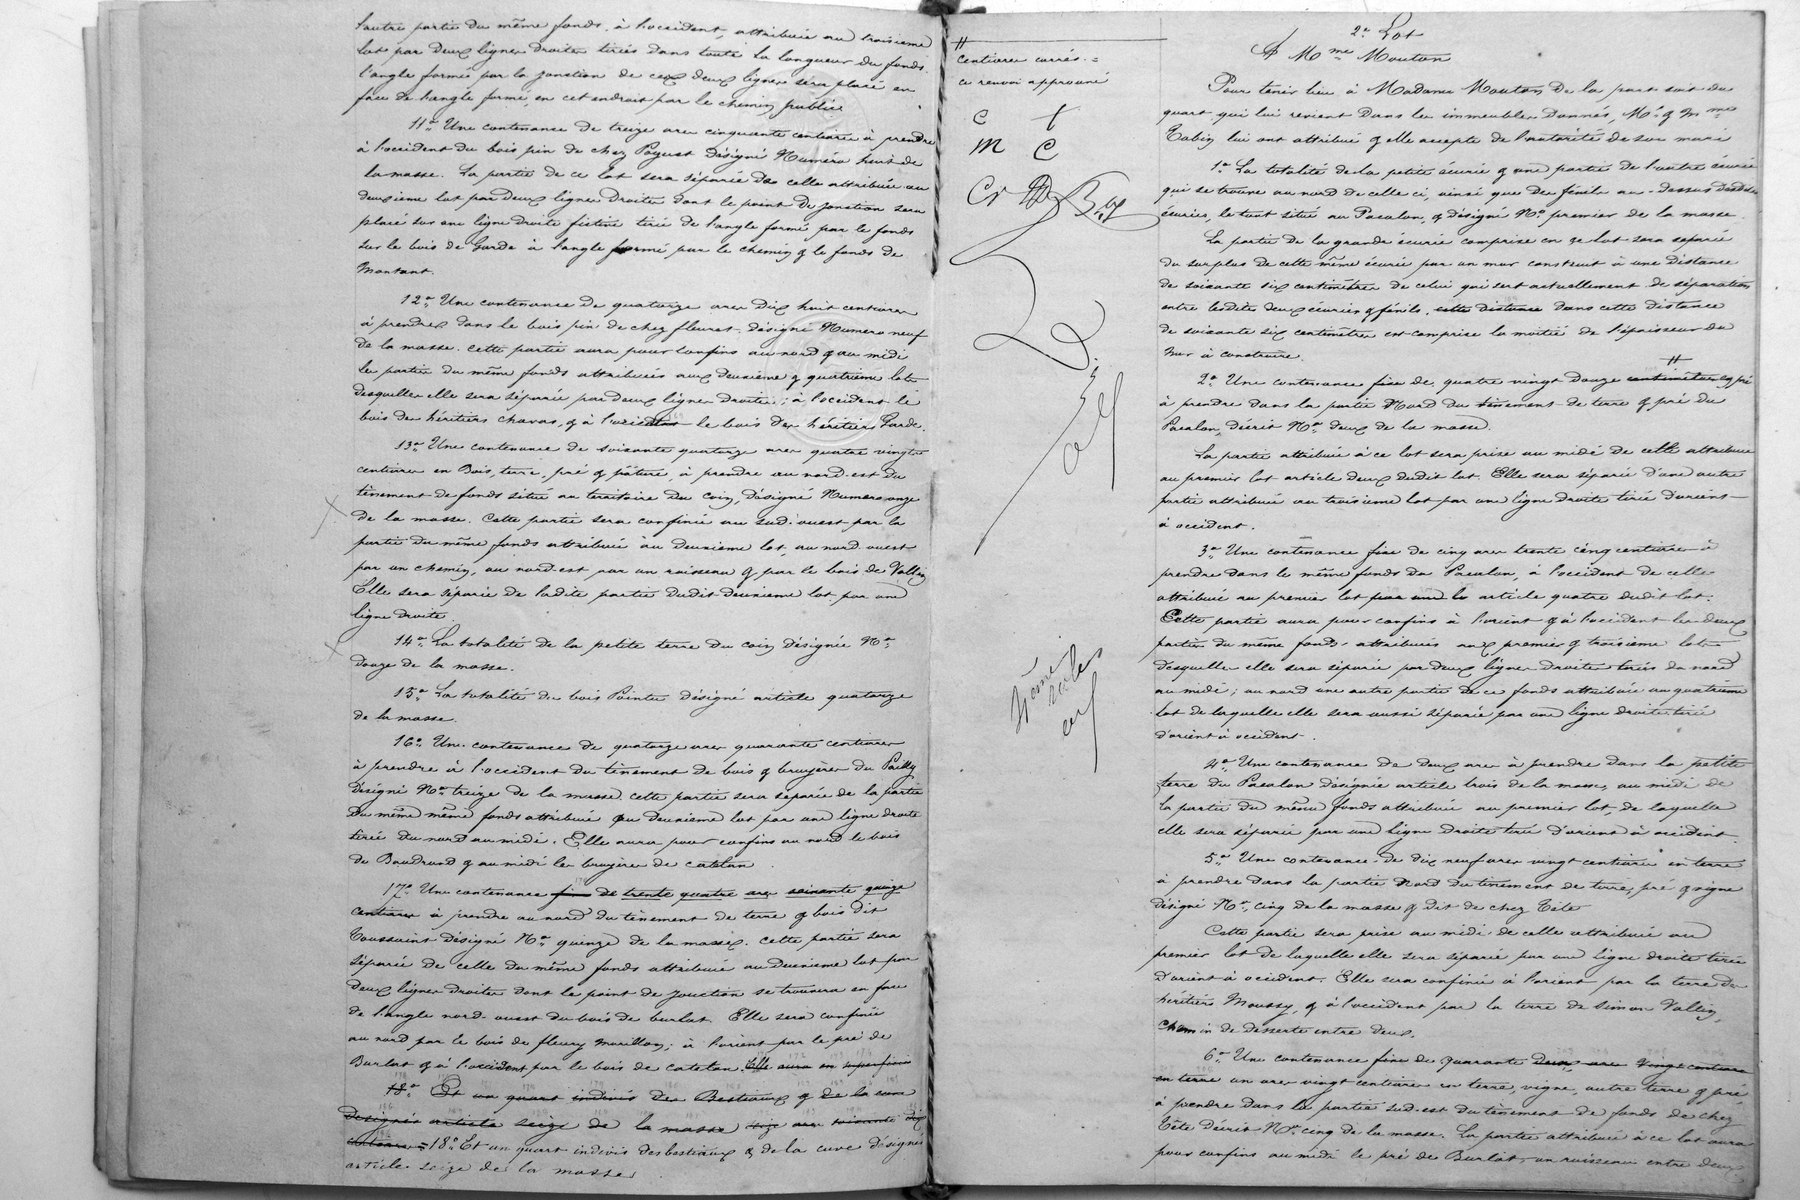 l'autre partie du même fonds, à l'occident, attribuée au troisième
lot par deux lignes droites tirées dans toute la longueur du fonds.
l'angle formé par la jonction de ces deux lignes sera placé en
face de l'angle formé, en cet endroit par le chemin public.
11° Une contenance de treize ares cinquante centiares à prendre
à l'occident du bois pin de chez Poyuet désigné Numéro huit de
la masse. La partie de ce lot sera séparée de celle attribuée au
deuxième lot par deux lignes droites dont le point de jonction sera
placé sur une ligne droite fictive tirée de l'angle formé par le fonds
sur le bois de Garde à l'angle formé par le chemin & le fonds de
Montant.
12° Une contenance de quatorze ares dix huit centiares
à prendre dans le bois pin de chez fleurat, désigné Numéro neuf
de la masse. cette partie aura pour confins au nord & au midi
les parties du même fonds attribuées aux deuxième & quatrième lots
desquelles elle sera séparée par deux lignes droites; à l'occident le
bois des héritiers Chavas, & à l'orient le bois des héritiers Garde.
13° Une contenance de soixante quatorze ares quatre vingts
centiares en Bois, terre, pré & pâture, à prendre au nord-est du
tènement de fonds situé au territoire du Coin, désigné Numéro onze
de la masse. Cette partie sera confinée au sud-ouest par la
partie du même fonds attribuée au deuxième lot, au nord-ouest
par un chemin, au nord-est par un ruisseau & par le bois de Vallin
Elle sera séparée de ladite partie dudit deuxième lot par une
ligne droite.
14° La totalité de la petite terre du coin désignée N°
douze de la masse.
15° La totalité du bois Pointu désigné article quatorze
de la masse.
16° Une contenance de quatorze ares quarante centiares
à prendre à l'occident du tènement de bois & bruyères du Pailly
désigné N° treize de la masse. cette partie sera séparée de la partie
du même même fonds attribuée au deuxième lot par une ligne droite
tirée du nord au midi. Elle aura pour confins au nord le bois
de Baudrand & au midi les bruyères de catelan.
17° Une contenance fixe de trente quatre ares soixante quinze
centiares à prendre au nord du tènement de terre & bois dit
Toussaint désigné N° quinze de la masse. cette partie sera
séparée de celle du même fonds attribuée au deuxième lot par
deux lignes droites dont le point de jonction se trouvera en face
de l'angle nord-ouest du bois de burlat. Elle sera confinée
au nord par le bois de fleury Marillon; à l'orient par le pré de
Burlat & à l'occident par le bois de catelan. Elle aura en superficie
18° Et un quart indivis des Bestiaux & de la cuve
désignés article seize de la masse
18° Et un quart indivis des bestiaux & de la cuve désignés
article seize de la masse
#
centiares carrés. =
ce renvoi approuvé
C +
M C
2e Lot
A Mme Mouton
Pour tenir lieu à Madame Mouton de la part soit du
quart qui lui revient dans les immeubles donnés, Mr & Mme
Tabin lui ont attribué & elle accepte de l'autorité de son mari
1° La totalité de la petite écurie & une partie de l'autre écurie
qui se trouve au nord de celle ci, ainsi que du fénil au-dessus desdites
écuries, le tout situé au Pacalon, & désigné N° premier de la masse.
La partie de la grande écurie comprise en ce lot sera séparée
du surplus de cette même écurie par un mur construit à une distance
de soixante six centimètres de celui qui sert actuellement de séparation
entre lesdites deux écuries & fénils. cette distance dans cette distance
de soixante six centimètres est comprise la moitié de l'épaisseur du
mur à construire.
#
2° Une contenance fixe de quatre vingt douze centimètres
à prendre dans la partie Nord du tènement de terre & pré du
Pacalon, décrit N° deux de la masse.
La partie attribuée à ce lot sera prise au midi de celle attribuée
au premier lot article deux dudit lot. Elle sera séparée d'une autre
partie attribuée au troisième lot par une ligne droite tirée d'orient
à occident.
3° Une contenance fixe de cinq ares trente cinq centiares à
prendre dans le même fonds du Pacalon, à l'occident de celle
attribuée au premier lot par une la article quatre dudit lot.
Cette partie aura pour confins à l'orient & à l'occident les deux
parties du même fonds attribuées aux premier & troisième lots
desquelles elle sera séparée par deux lignes droites tirées du nord
au midi; au nord une autre partie de ce fonds attribuée au quatrième
lot de laquelle elle sera aussi séparée par une ligne droite tirée
d'orient à occident.
4° Une contenance de deux ares à prendre dans la petite
terre du Pacalon désignée article trois de la masse, au midi de
la partie du même fonds attribuée au premier lot, de laquelle
elle sera séparée par une ligne droite tirée d'orient à occident.
5° Une contenance de dix neuf ares vingt centiares en terre
à prendre dans la partie Nord du tènement de terre, pré & vigne
désigné N° cinq de la masse & dit de chez Tête
Cette partie sera prise au midi de celle attribuée au
premier lot de laquelle elle sera séparée par une ligne droite tirée
d'orient à occident. Elle sera confinée à l'orient par la terre des
héritiers Moussy, & à l'occident par la terre de Simon Vallin,
chemin de desserte entre deux.
6° Une contenance fixe de quarante deux ares vingt centiares
en terre un are vingt centiares en terre, vigne, autre terre & pré,
à prendre dans la partie sud-est du tènement de fonds de chez
Tête décrit N° cinq de la masse. La partie attribuée à ce lot aura
pour confins au midi le pré de Burlat, un ruisseau entre deux